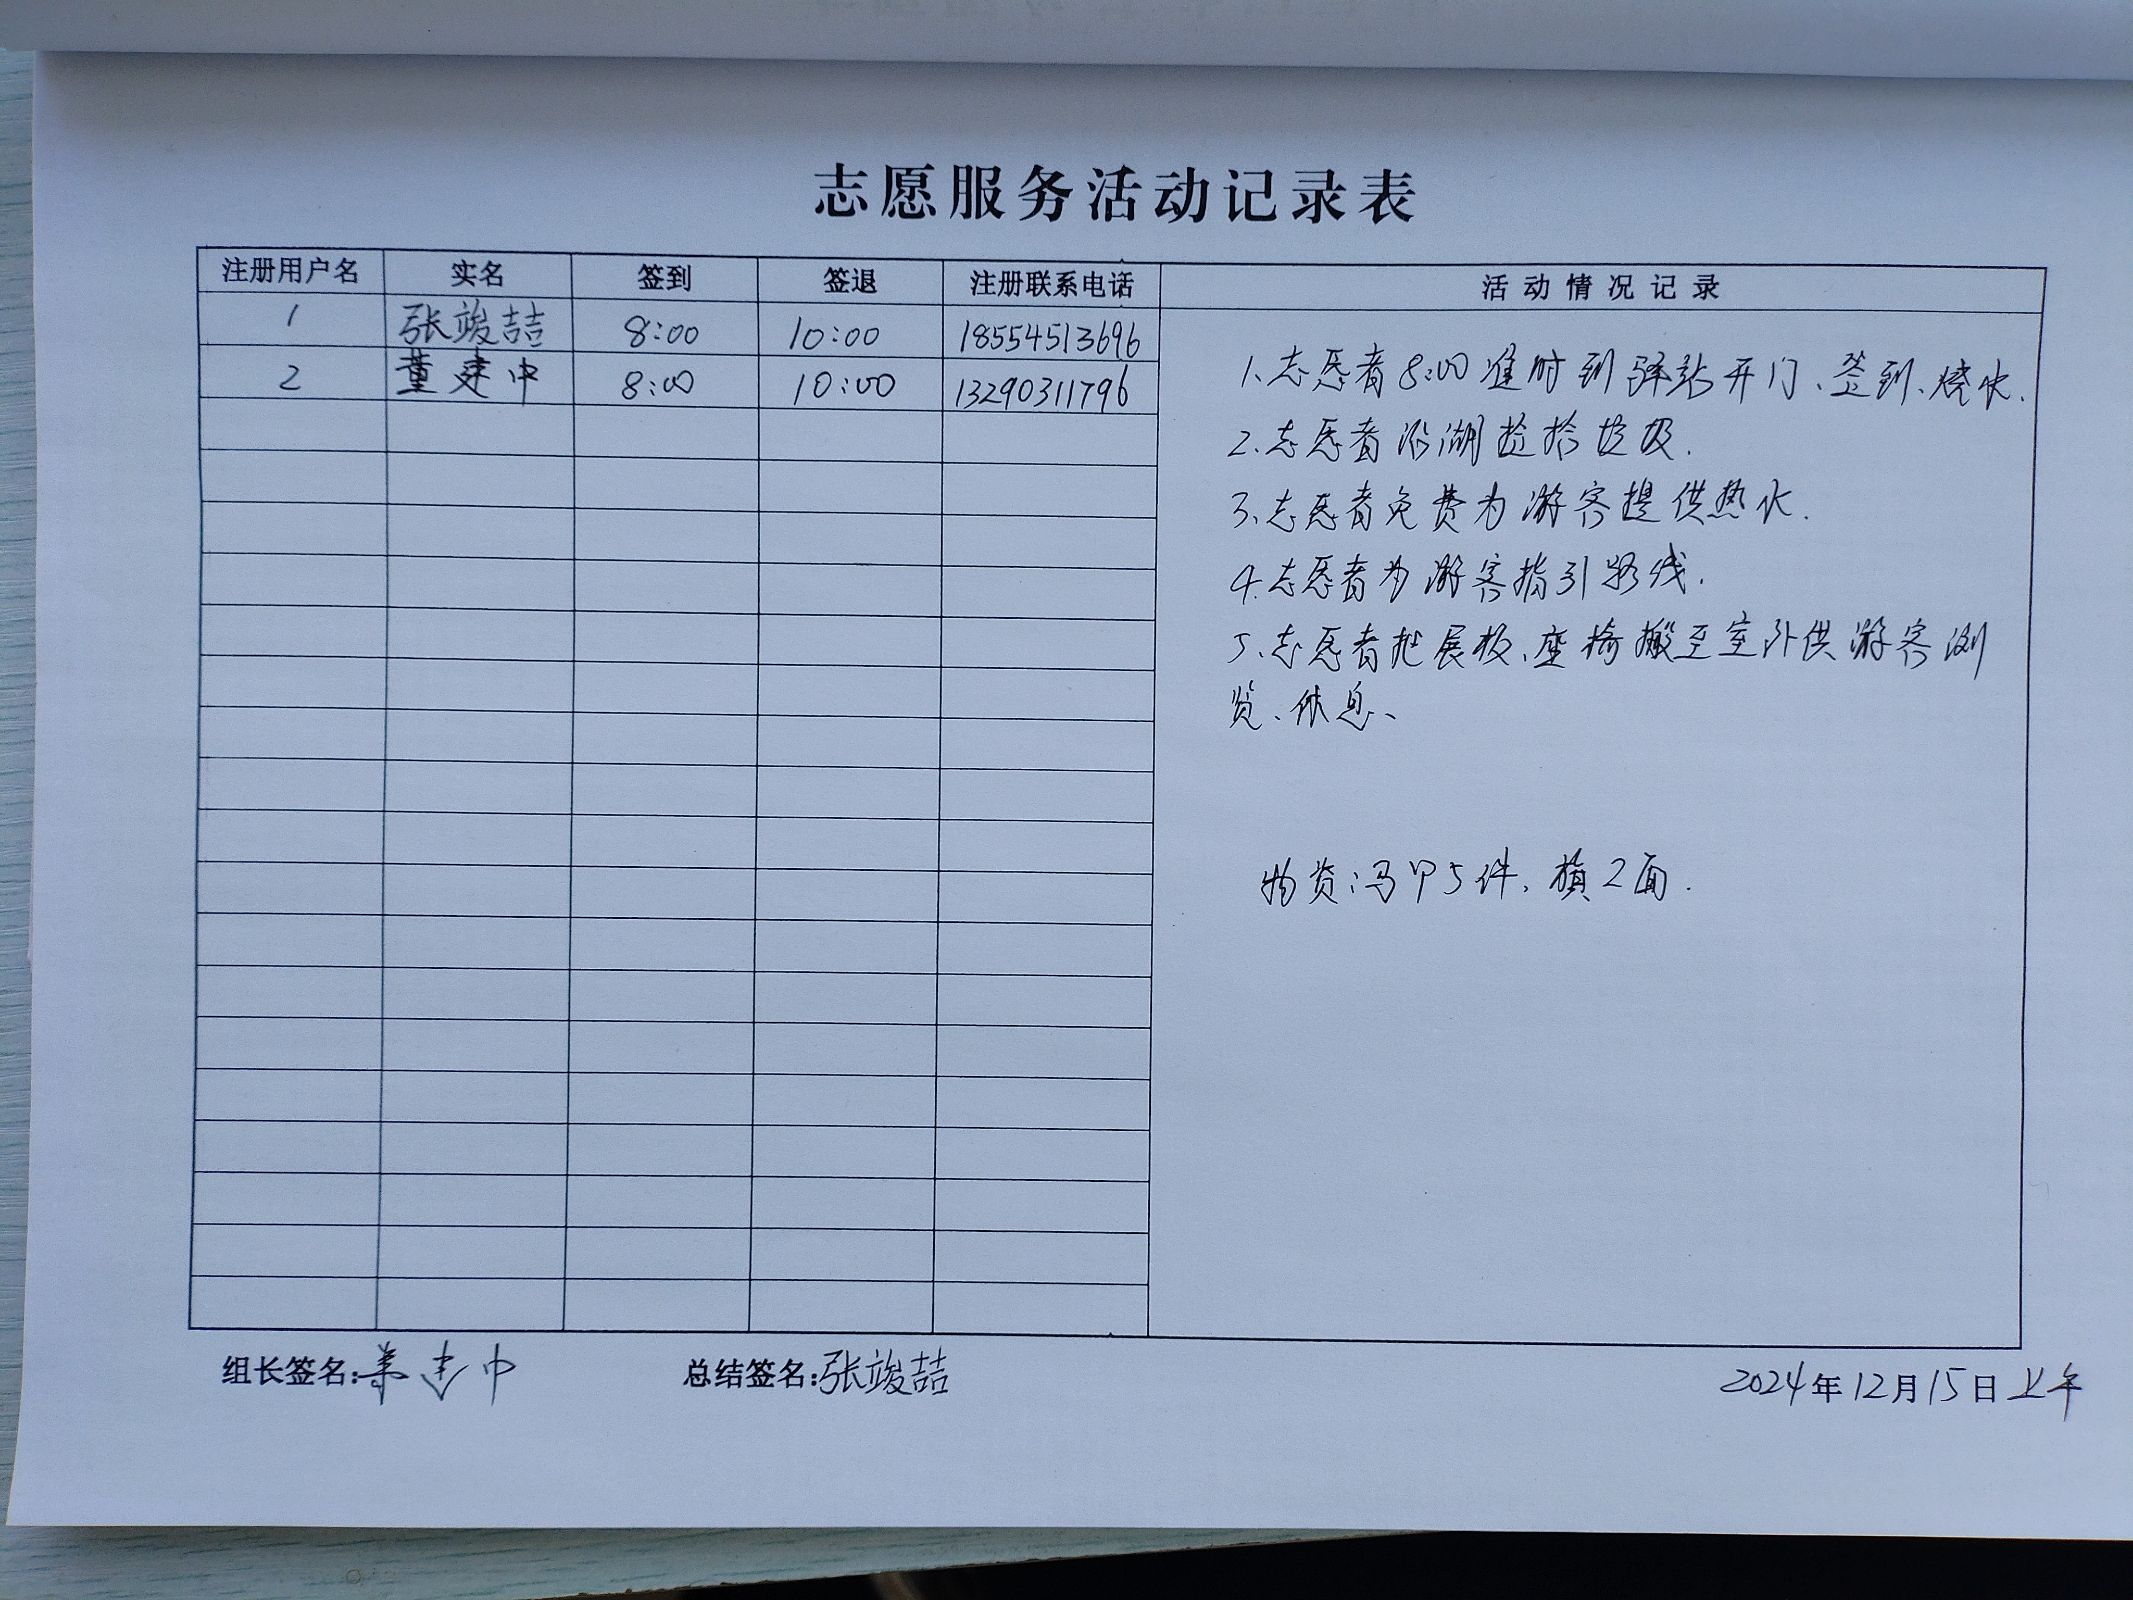 志愿服务活动记录表
注册用户名 实名 签到 签退 注册联系电话 活动情况记录
1 张竣喆 8:00 10:00 18554513696
2 董建中 8:00 10:00 13290311796
1、志愿者8:00准时到驿站开门、签到、烧水.
2、志愿者沿湖捡拾垃圾.
3、志愿者免费为游客提供热水.
4、志愿者为游客指引路线.
5、志愿者把展板、座椅搬至室外供游客浏
览、休息、
物资:马甲5件、旗2面.
组长签名:董建中 总结签名:张竣喆 2024年12月15日上午